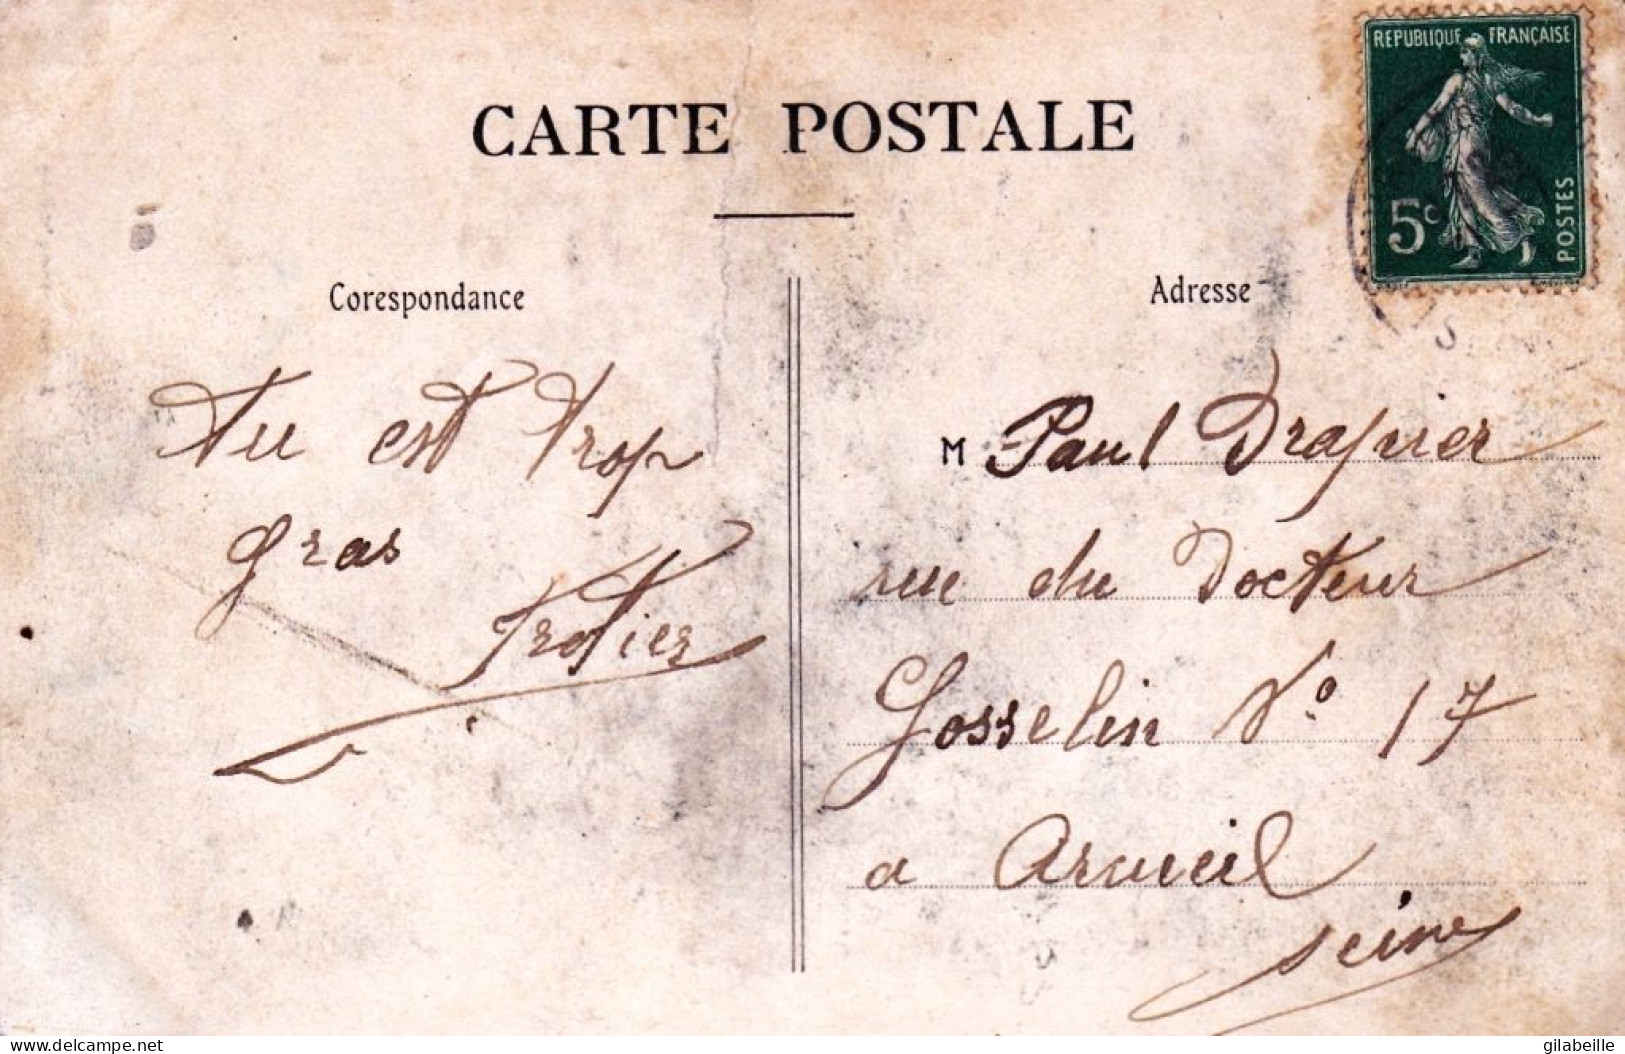 CARTE POSTALE
Corespondance
Adresse
REPUBLIQUE FRANÇAISE
5c
POSTES
tu est trop
gras
Trotier
M Paul Drapier
rue du Docteur
Gosselin N° 17
a Arcueil
Seine
www.delcampe.net
gilabeille